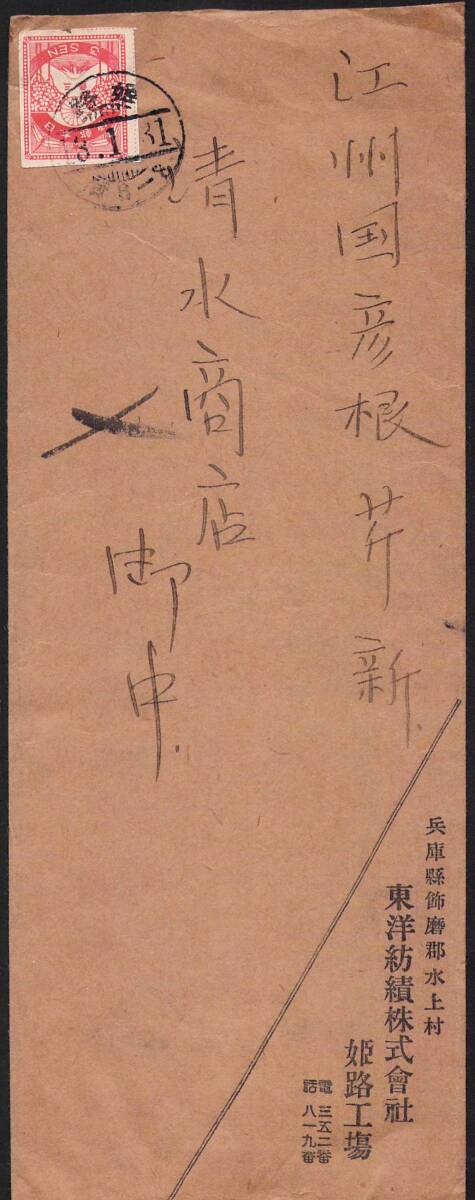 江州国彦根芹新
清水商店
御中
兵庫縣飾磨郡水上村
東洋紡績株式會社
姫路工場
電話 三五二番
八一九番
3 SEN
3.1.31